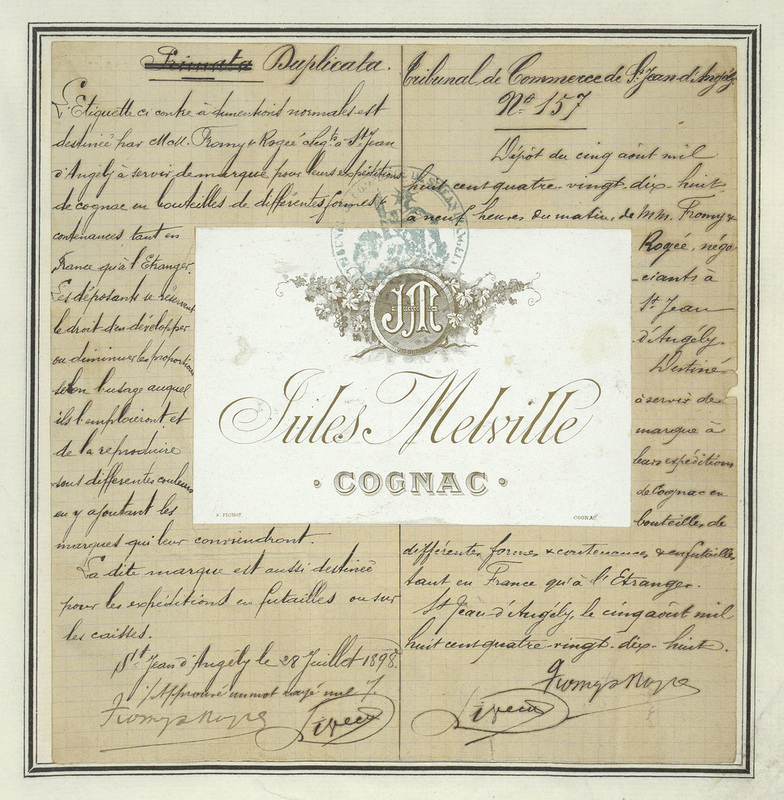 Primata Duplicata.
L'Etiquette ci contre à dimentions normales est
destinée par MM. Fromy & Rogée négts à St Jean
d'Angély à servir de marque pour leurs expéditions
de cognac en bouteilles de différentes formes &
contenances tant en
France qu'à l'Etranger.
Les déposants se réservent
le droit d'en développer
ou diminuer les proportions
selon l'usage auquel
ils l'emploieront et
de la reproduire
sous differentes couleurs
en y ajoutant les
marques qui leur conviendront.
La dite marque est aussi destinée
pour les expéditions en futailles ou sur
les caisses.
St Jean d'Angély le 28 Juillet 1898.
Approuvé un mot rayé nul
Fromy & Rogée
Tribunal de Commerce de St Jean d'Angély
No 157
Dépôt du cinq août mil
huit cent quatre vingt-dix-huit
à neuf heures du matin, de MM. Fromy &
Rogée, négo-
ciants à
St Jean
d'Angély.
Destiné
à servir de
marque à
leurs expéditions
de Cognac en
bouteilles de
différentes formes & contenances & en futailles
tant en France qu'à l'Etranger.
St Jean d'Angély, le cinq août mil
huit cent quatre-vingt-dix-huit.
Fromy & Rogée
JM
Jules Melville
COGNAC
COGNAC